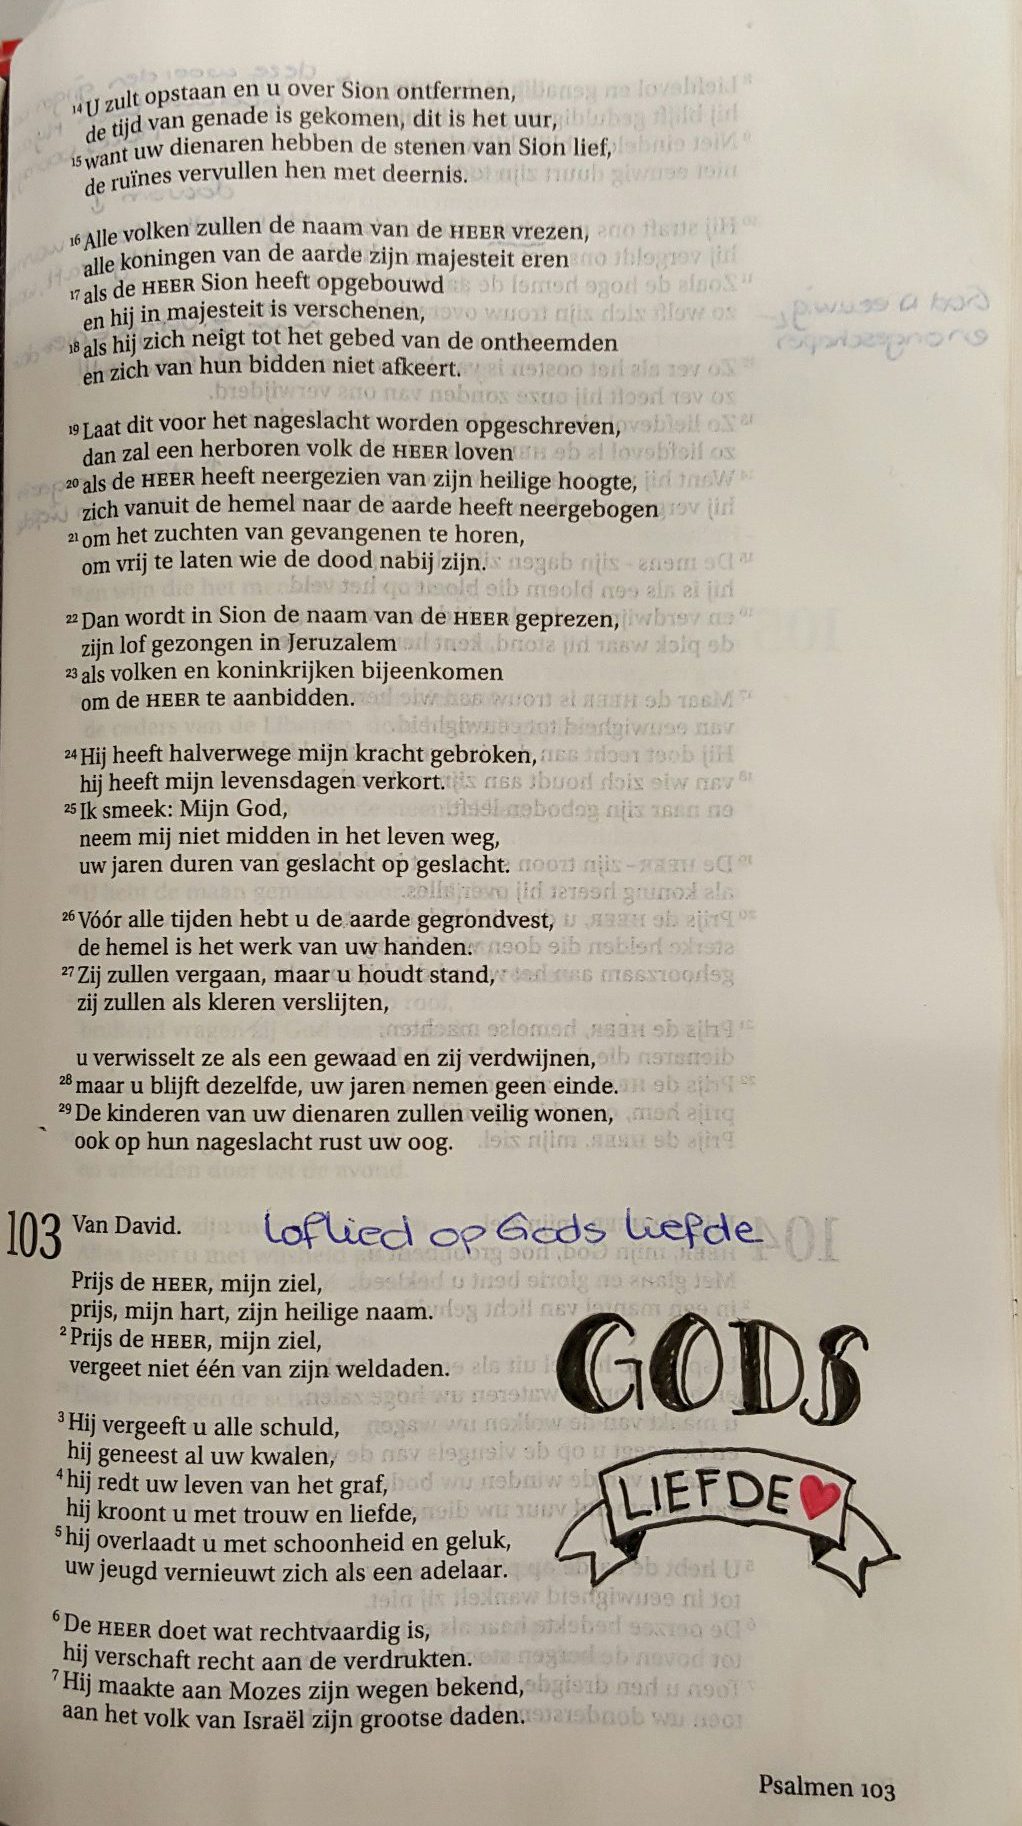 14 U zult opstaan en u over Sion ontfermen,
de tijd van genade is gekomen, dit is het uur,
15 want uw dienaren hebben de stenen van Sion lief,
de ruïnes vervullen hen met deernis.
16 Alle volken zullen de naam van de HEER vrezen,
alle koningen van de aarde zijn majesteit eren
17 als de HEER Sion heeft opgebouwd
en hij in majesteit is verschenen,
18 als hij zich neigt tot het gebed van de ontheemden
en zich van hun bidden niet afkeert.
19 Laat dit voor het nageslacht worden opgeschreven,
dan zal een herboren volk de HEER loven
20 als de HEER heeft neergezien van zijn heilige hoogte,
zich vanuit de hemel naar de aarde heeft neergebogen
21 om het zuchten van gevangenen te horen,
om vrij te laten wie de dood nabij zijn.
22 Dan wordt in Sion de naam van de HEER geprezen,
zijn lof gezongen in Jeruzalem
23 als volken en koninkrijken bijeenkomen
om de HEER te aanbidden.
24 Hij heeft halverwege mijn kracht gebroken,
hij heeft mijn levensdagen verkort.
25 Ik smeek: Mijn God,
neem mij niet midden in het leven weg,
uw jaren duren van geslacht op geslacht.
26 Vóór alle tijden hebt u de aarde gegrondvest,
de hemel is het werk van uw handen.
27 Zij zullen vergaan, maar u houdt stand,
zij zullen als kleren verslijten,
u verwisselt ze als een gewaad en zij verdwijnen,
28 maar u blijft dezelfde, uw jaren nemen geen einde.
29 De kinderen van uw dienaren zullen veilig wonen,
ook op hun nageslacht rust uw oog.
103 Van David. Loflied op Gods liefde
Prijs de HEER, mijn ziel,
prijs, mijn hart, zijn heilige naam.
2 Prijs de HEER, mijn ziel,
vergeet niet één van zijn weldaden.
GODS
LIEFDE
3 Hij vergeeft u alle schuld,
hij geneest al uw kwalen,
4 hij redt uw leven van het graf,
hij kroont u met trouw en liefde,
5 hij overlaadt u met schoonheid en geluk,
uw jeugd vernieuwt zich als een adelaar.
6 De HEER doet wat rechtvaardig is,
hij verschaft recht aan de verdrukten.
7 Hij maakte aan Mozes zijn wegen bekend,
aan het volk van Israël zijn grootse daden.
Psalmen 103